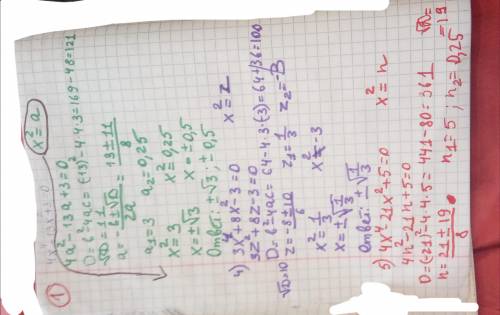 1
x²=a
4a²-13a+3=0
D=b²-4ac=(-13)²-4·4·3=169-48=121
√D=11
a=-b±√D/2a=13±11/8
a₁=3 a₂=0,25
x²=3 x²=0,25
x=±√3 x=±0,5
Ответ: ±√3; ±0,5
4) 3x⁴+8x²-3=0 x²=z
3z+8z-3=0
D=b²-4ac=64-4·3·(-3)=64+36=100
√D=10 z=-8±10/6 z₁=1/3 z₂=-3
x²=1/3 x²≠-3
x=±√1/3
Ответ: ±√1/3
5) 4x⁴-21x²+5=0 x²=n
4n²-21n+5=0
D=(-21)²-4·4·5=441-80=361 √D=19
n=21±19/8 n₁=5; n₂=0,25